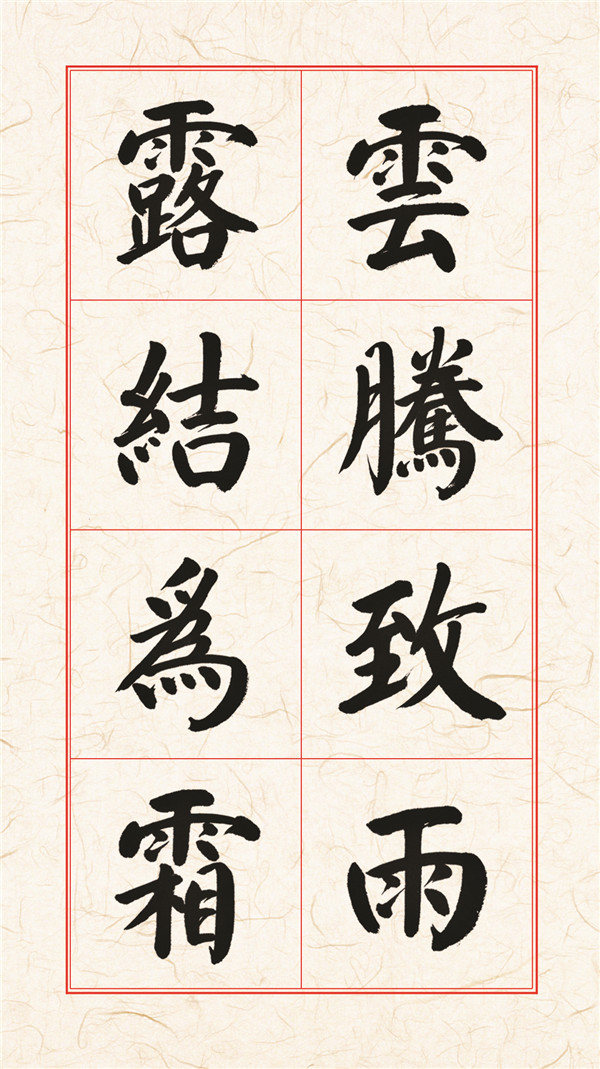 雲騰致雨
露結爲霜